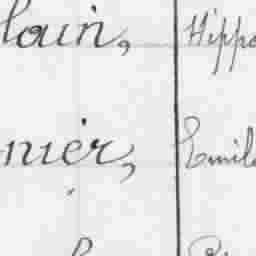 lain, Hippo
nier, Emile